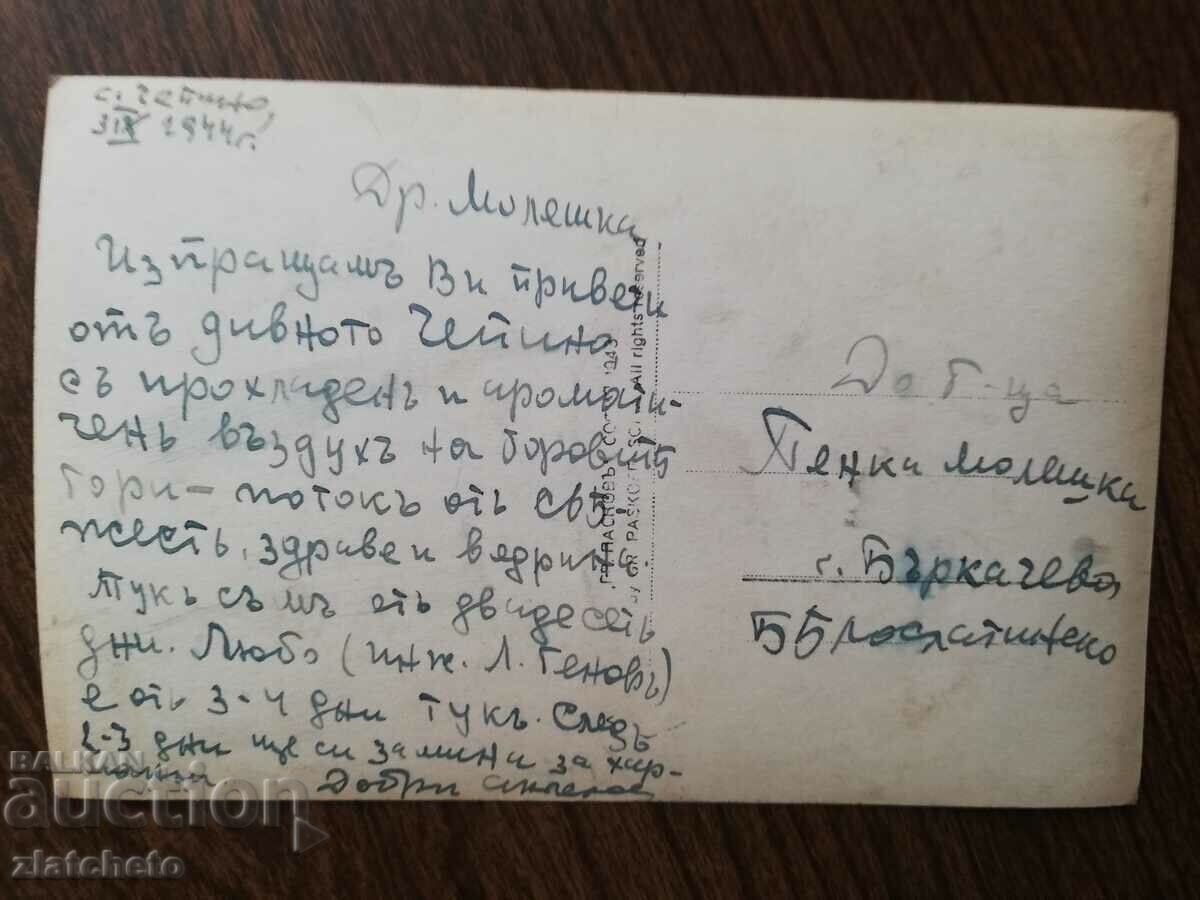 с. Чепино,
3 IX 1944 г.
Др. Молешка,
Изпращамъ Ви привети
отъ дивното Чепино
съ прохладенъ и аромати-
ченъ въздухъ на боровитѣ
гори — потокъ отъ свѣ-
жесть, здраве и ведрина.
Тукъ съмъ отъ двадесеть
дни. Любо (инж. Л. Геновъ)
е отъ 3-4 дни тукъ. Следъ
2-3 дни ще си замина за хар-
Добри
До Г-ца
Пенка Молешка
с. Бъркачево,
ББ
ГР. ПАСКОВЪ 1943
by GR PASKOFF All rights reserved
BALKAN
auction
zlatcheto